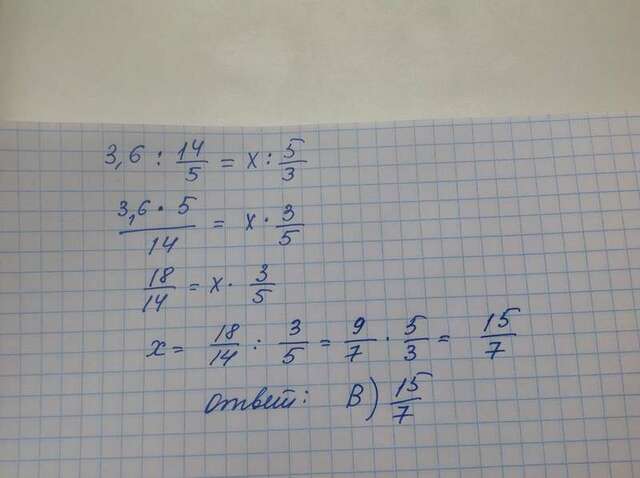 3,6 : 14/5 = x : 5/3
3,6 · 5/14 = x · 3/5
18/14 = x · 3/5
x = 18/14 : 3/5 = 9/7 · 5/3 = 15/7
ответ: В) 15/7